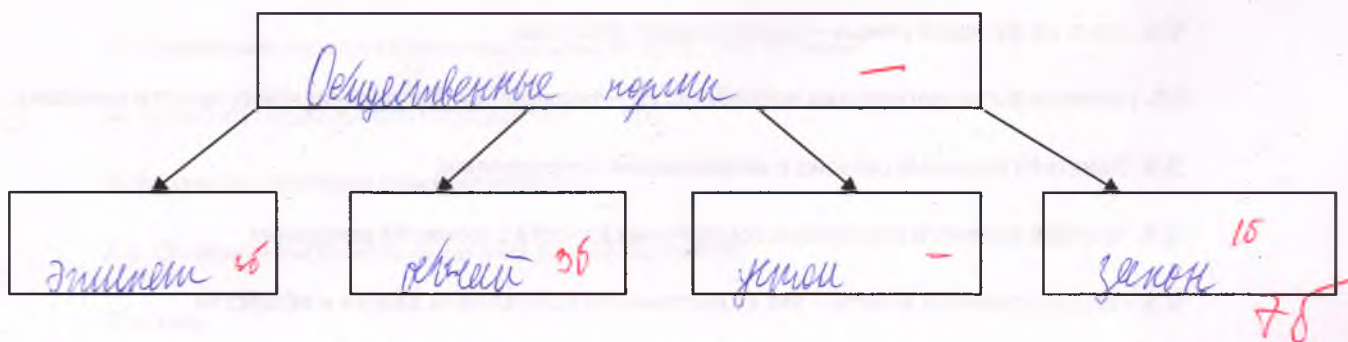 Общественные нормы —
этикет 3б обычай 3б устои - закон 1б
7б